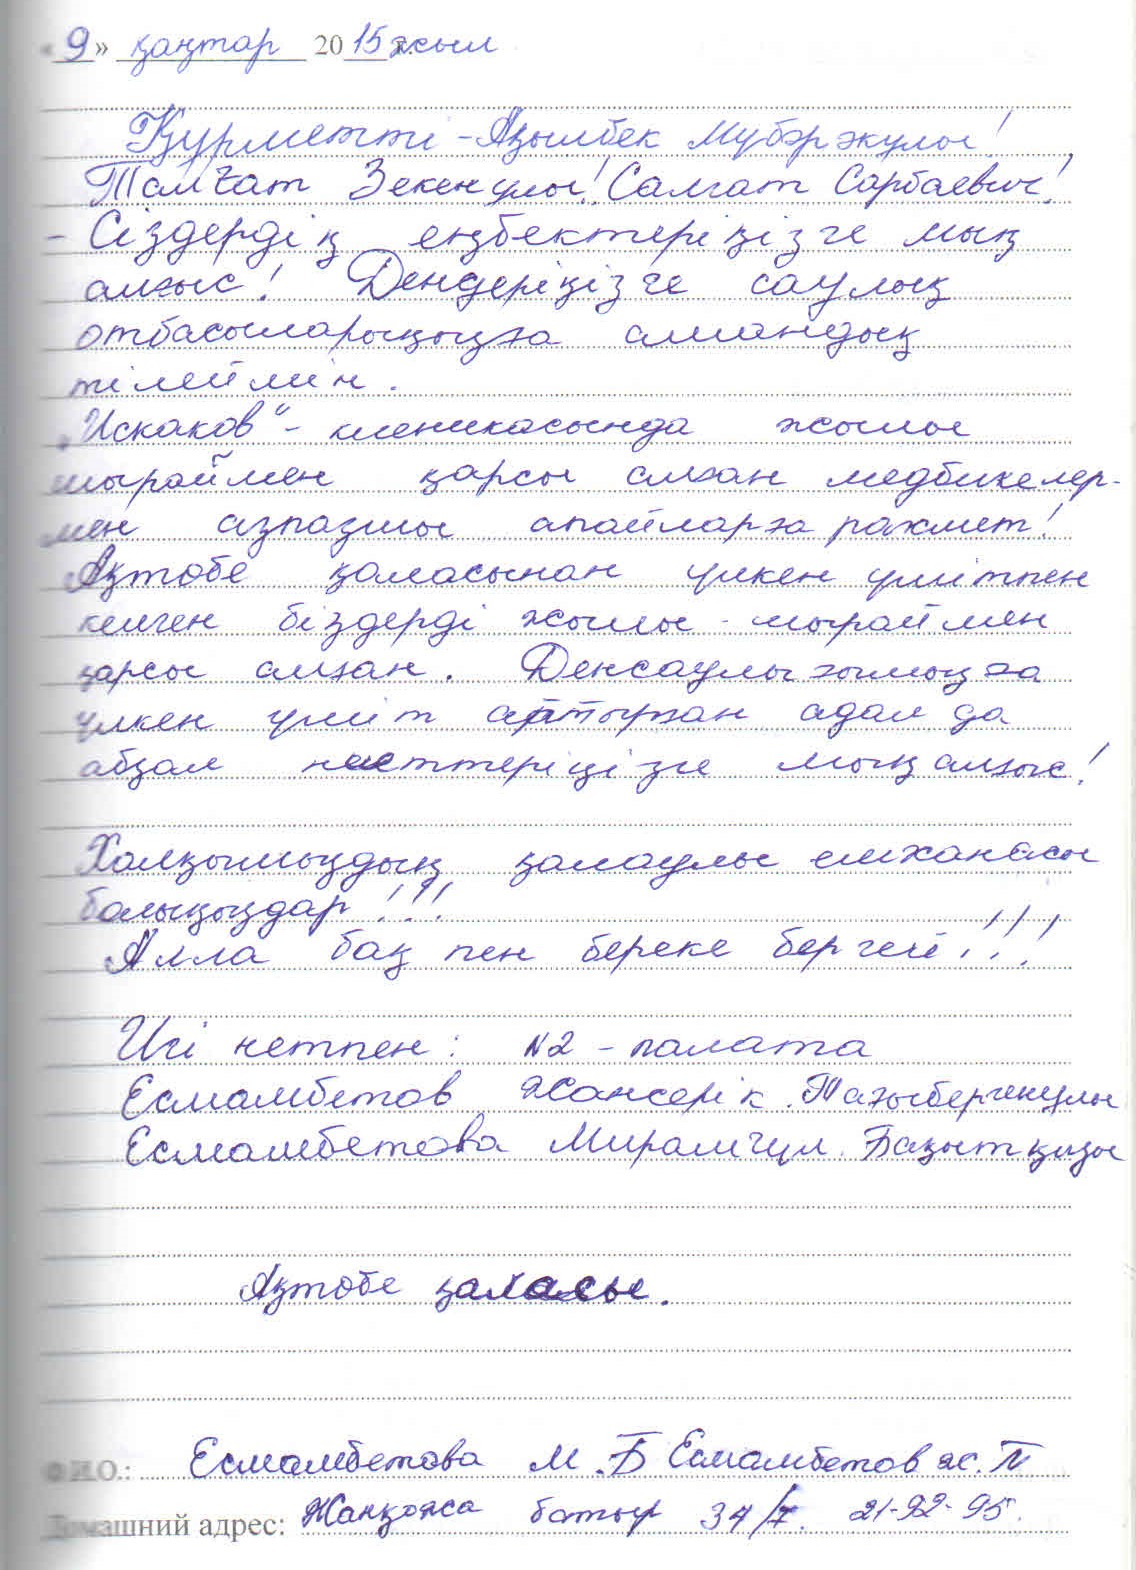 «9» қаңтар 2015 жыл
Құрметті - Ақылбек Мубәрәкулы!
Талғат Зекенұлы! Салғат Сарбаевич!
- Сіздердің еңбектеріңізге мың
алғыс! Дендеріңізге саулық
отбасыларыңызға амандық
тілеймін.
„Искаков“ - клиникасында жылы
шыраймен қарсы алған медбикелер-
мен азпазшы апайларға рахмет!
Ақтөбе қаласынан үлкен үмітпен
келген біздерді жылы - шыраймен
қарсы алған. Денсаулығымызға
үлкен үміт арттырған адал да
абзал ниеттеріңізге мың алғыс!
Халқымыздың қалаулы емханасы
болыңыздар!!!
Алла бақ пен береке бергей!!!
Игі нетпен: №2 - палата
Есмамбетов Жансерік Тағыбергенұлы
Есмамбетова Мирамгүл Бақытқызы
Ақтөбе қаласы.
Ф.И.О.: Есмамбетова М.Б Есмамбетов Ж.Т
Домашний адрес: Жанқожа батыр 34/7. 21-92-95.